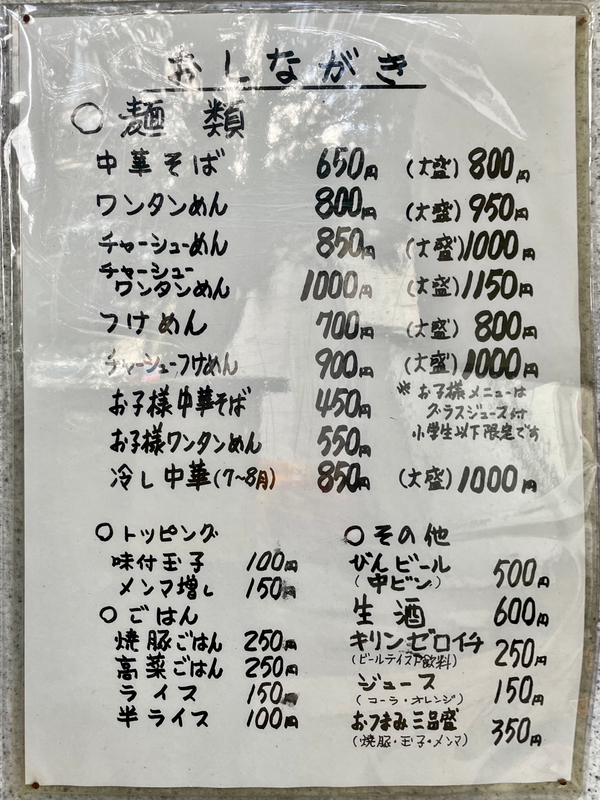 おしながき
○ 麺類
中華そば 650円 (大盛) 800円
ワンタンめん 800円 (大盛) 950円
チャーシューめん 850円 (大盛) 1000円
チャーシュー
ワンタンめん 1000円 (大盛) 1150円
つけめん 700円 (大盛) 800円
チャーシューつけめん 900円 (大盛) 1000円
お子様中華そば 450円
お子様ワンタンめん 550円
※お子様メニューは
グラスジュース付
小学生以下限定です
冷し中華(7~8月) 850円 (大盛) 1000円
○トッピング
味付玉子 100円
メンマ増し 150円
○ごはん
焼豚ごはん 250円
高菜ごはん 250円
ライス 150円
半ライス 100円
○その他
びんビール
(中ビン) 500円
生酒 600円
キリンゼロイチ
(ビールテイスト飲料) 250円
ジュース
(コーラ・オレンジ) 150円
おつまみ三品盛
(焼豚・玉子・メンマ) 350円